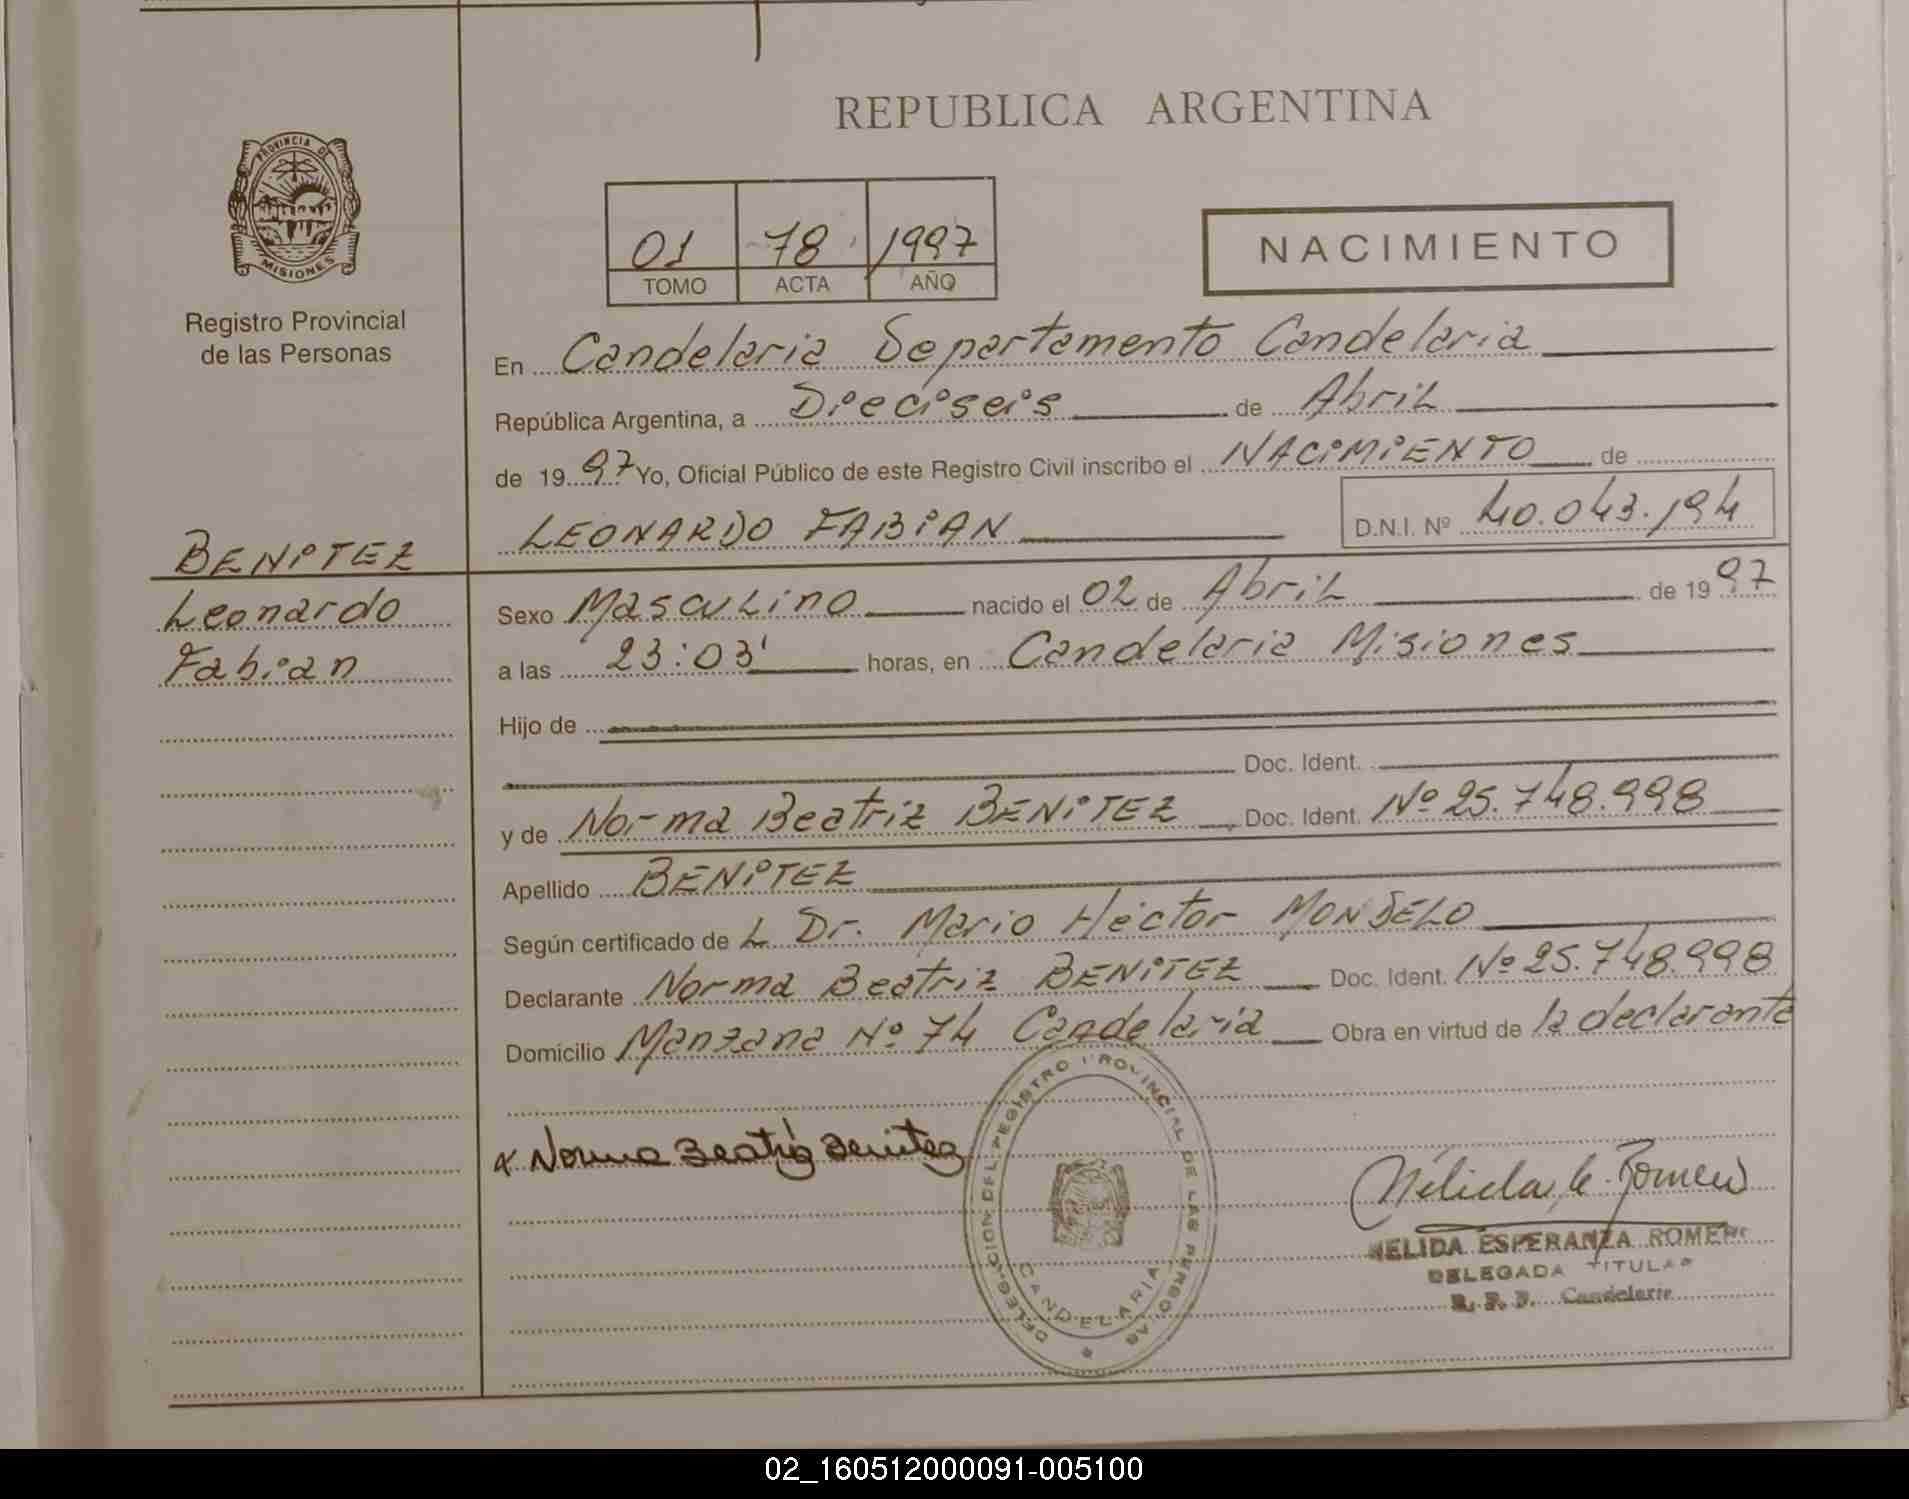 REPUBLICA ARGENTINA
PROVINCIA DE
MISIONES
Registro Provincial
de las Personas
01 78 1997
TOMO ACTA AÑO
NACIMIENTO
En Candelaria Departamento Candelaria
República Argentina, a Dieciseis de Abril
de 1997 Yo, Oficial Público de este Registro Civil inscribo el NACIMIENTO de
LEONARDO FABIAN D.N.I. Nº 40.043.194
BENITEZ
Leonardo
Fabian
Sexo Masculino nacido el 02 de Abril de 1997
a las 23:03' horas, en Candelaria Misiones
Hijo de
Doc. Ident.
y de Norma Beatriz BENITEZ Doc. Ident. Nº 25.748.998
Apellido BENITEZ
Según certificado de L Dr. Mario Héctor MONDELO
Declarante Norma Beatriz BENITEZ Doc. Ident. Nº 25.748.998
Domicilio Manzana Nº 74 Candelaria Obra en virtud de la declarante
x Norma Beatriz Benitez
DELEGACION DEL REGISTRO PROVINCIAL DE LAS PERSONAS
CANDELARIA
Nélida E. Romero
NELIDA ESPERANZA ROMERO
DELEGADA TITULAR
R. P. P. Candelaria
02_160512000091-005100